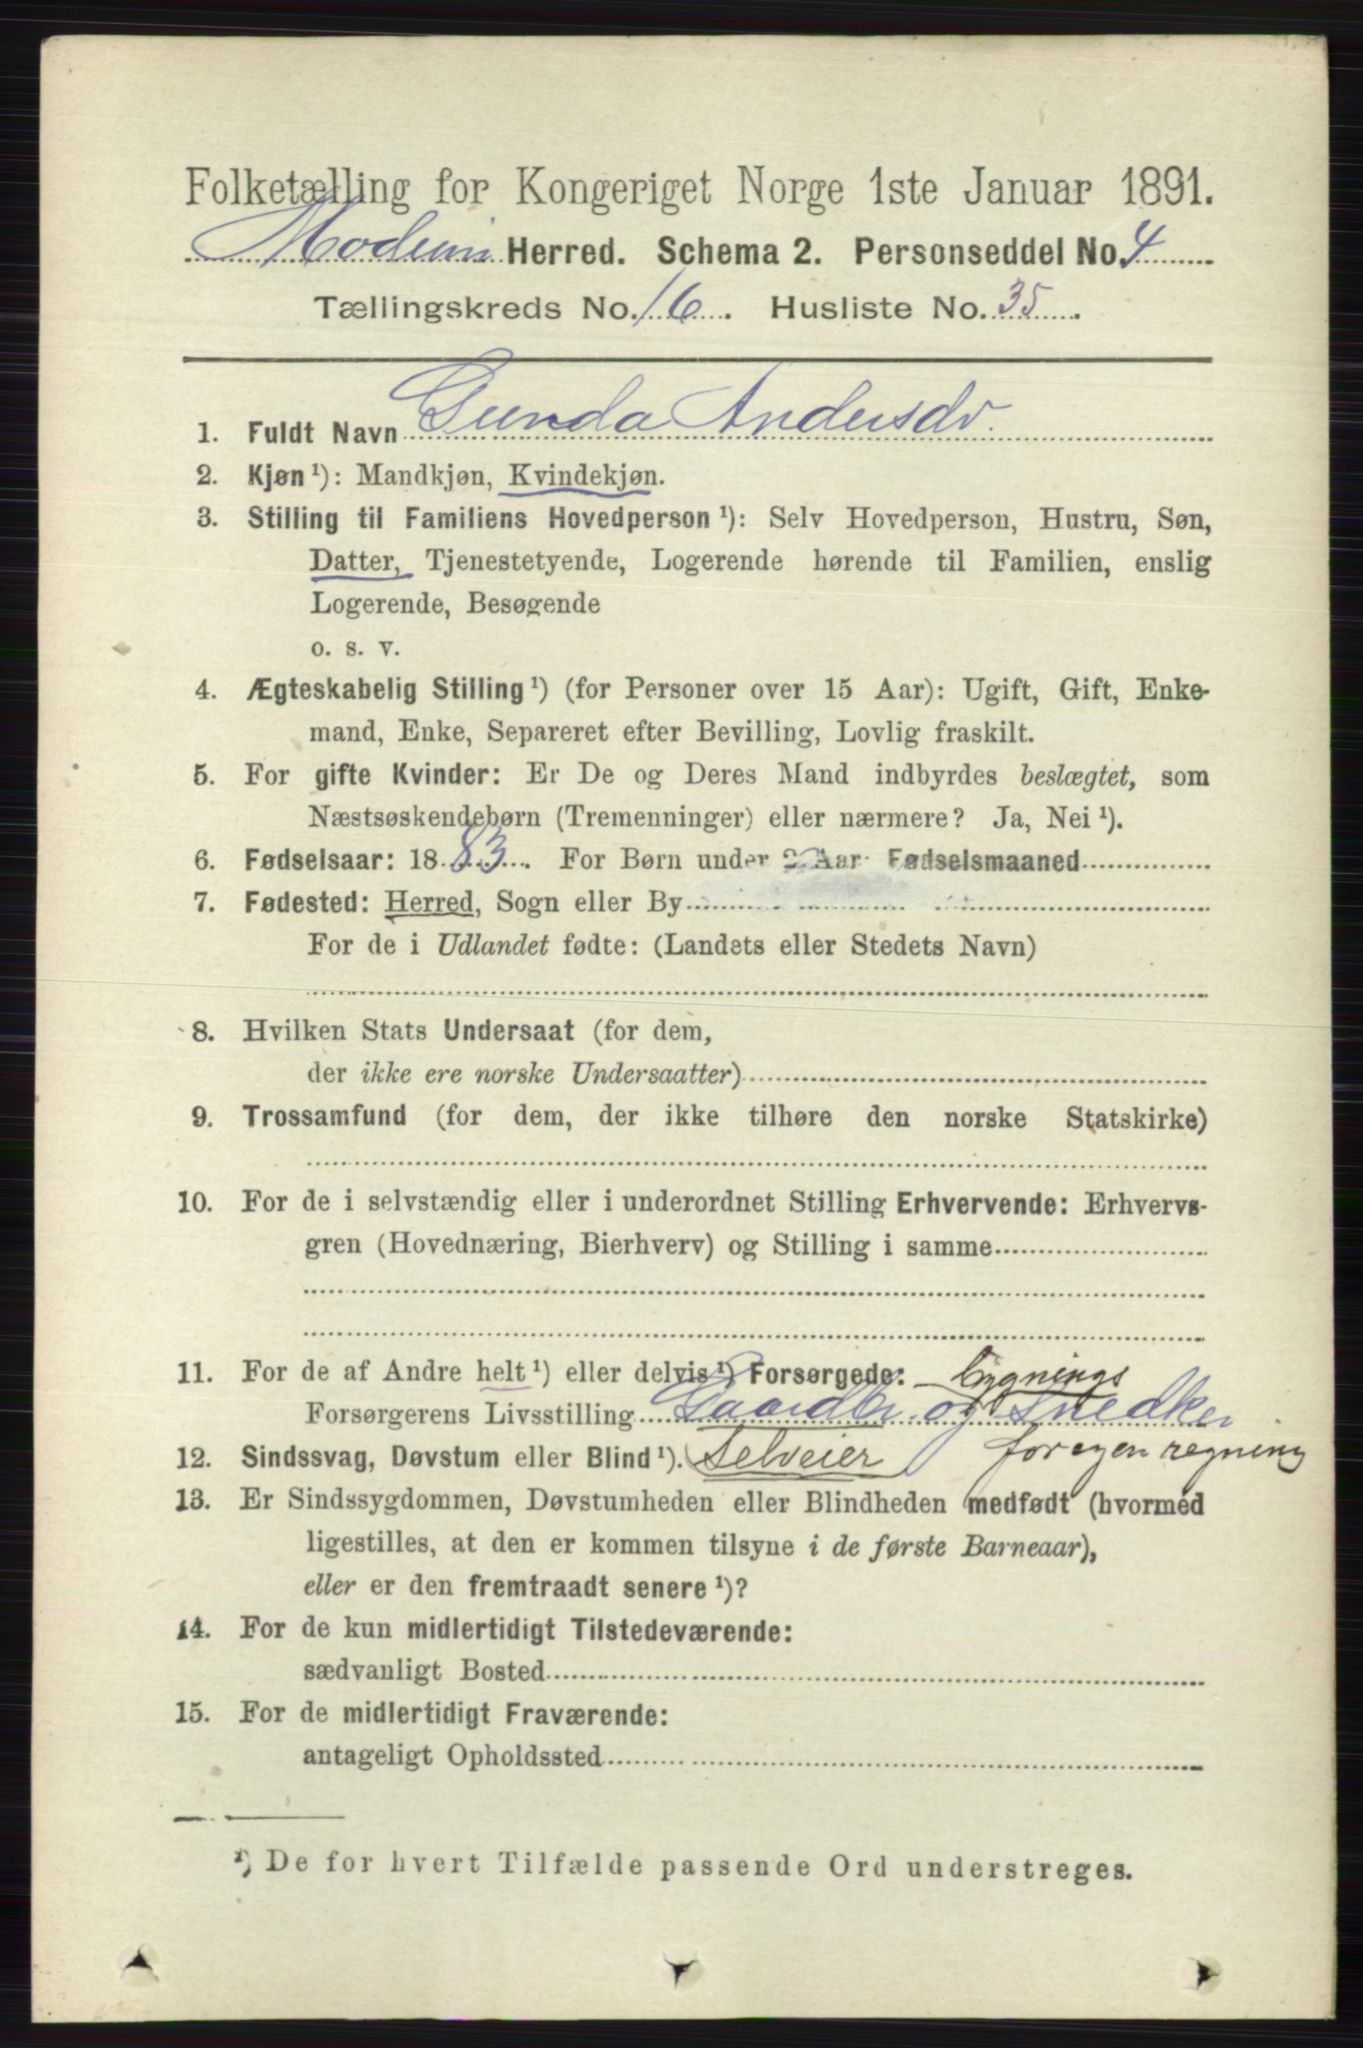 Folketælling for Kongeriget Norge 1ste Januar 1891.
Modum Herred. Schema 2. Personseddel No. 4
Tællingskreds No. 16. Husliste No. 35.
1. Fuldt Navn Gunda Andersdr.
2. Kjøn ¹): Mandkjøn, Kvindekjøn.
3. Stilling til Familiens Hovedperson ¹): Selv Hovedperson, Hustru, Søn,
Datter, Tjenestetyende, Logerende hørende til Familien, enslig
Logerende, Besøgende
o. s. v.
4. Ægteskabelig Stilling ¹) (for Personer over 15 Aar): Ugift, Gift, Enke-
mand, Enke, Separeret efter Bevilling, Lovlig fraskilt.
5. For gifte Kvinder: Er De og Deres Mand indbyrdes beslægtet, som
Næstsøskendebørn (Tremenninger) eller nærmere? Ja, Nei ¹).
6. Fødselsaar: 1883. For Børn under 2 Aar: Fødselsmaaned
7. Fødested: Herred, Sogn eller By
For de i Udlandet fødte: (Landets eller Stedets Navn)
8. Hvilken Stats Undersaat (for dem,
der ikke ere norske Undersaatter)
9. Trossamfund (for dem, der ikke tilhøre den norske Statskirke)
10. For de i selvstændig eller i underordnet Stilling Erhvervende: Erhvervs-
gren (Hovednæring, Bierhverv) og Stilling i samme
11. For de af Andre helt ¹) eller delvis ¹) Forsørgede: bygnings
Forsørgerens Livsstilling Gaardbr. og Snedker
12. Sindssvag, Døvstum eller Blind ¹). Selveier for egen regning
13. Er Sindssygdommen, Døvstumheden eller Blindheden medfødt (hvormed
ligestilles, at den er kommen tilsyne i de første Barneaar),
eller er den fremtraadt senere ¹)?
14. For de kun midlertidigt Tilstedeværende:
sædvanligt Bosted
15. For de midlertidigt Fraværende:
antageligt Opholdssted
¹) De for hvert Tilfælde passende Ord understreges.